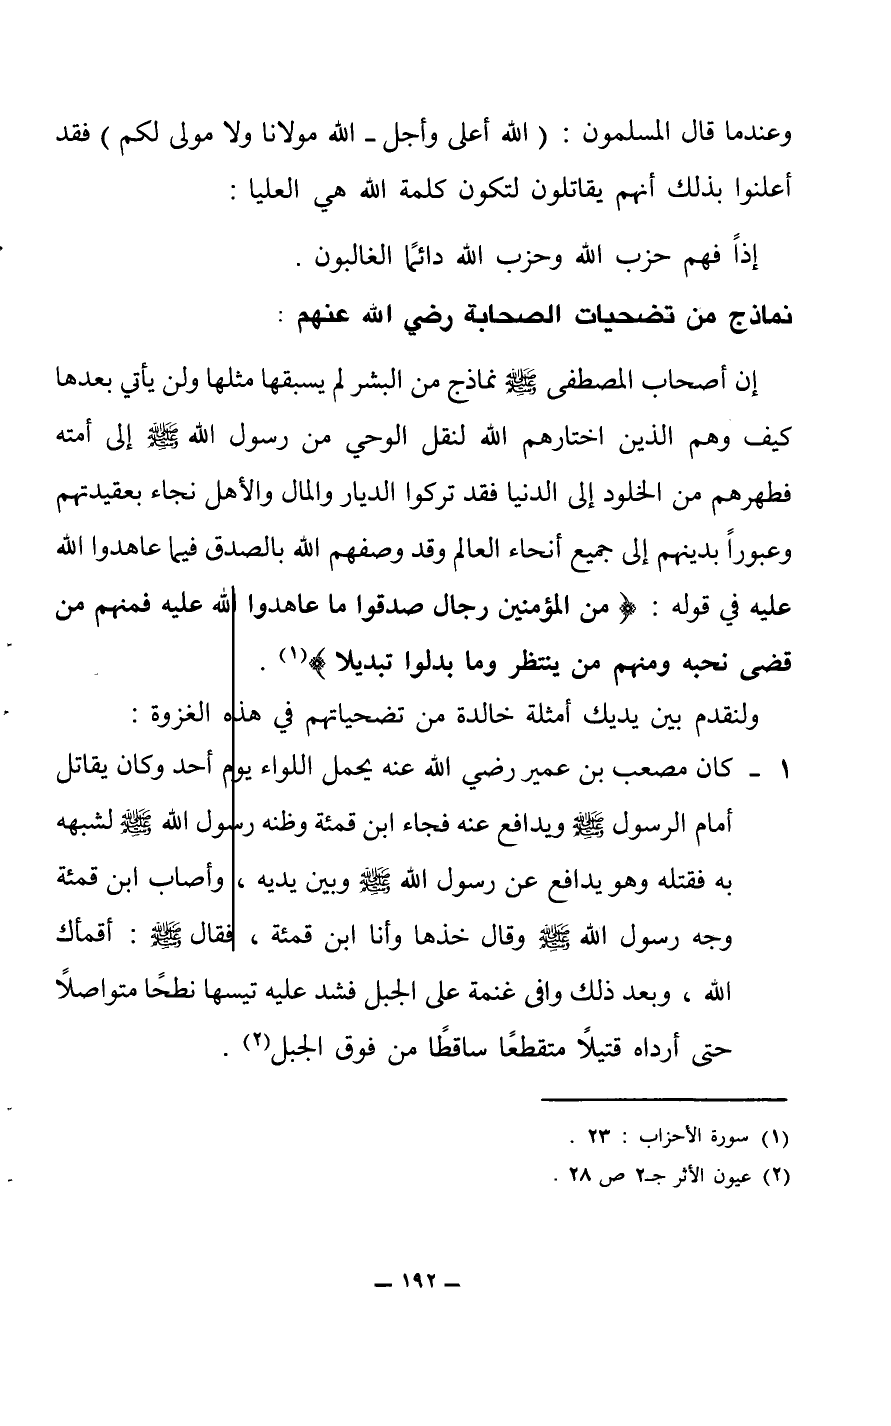 وعندما قال المسلمون : ( الله أعلى وأجل ـ الله مولانا ولا مولى لكم ) فقد
أعلنوا بذلك أنهم يقاتلون لتكون كلمة الله هي العليا :
إذاً فهم حزب الله وحزب الله دائمًا الغالبون .
نماذج من تضحيات الصحابة رضي الله عنهم :
إن أصحاب المصطفى ﷺ نماذج من البشر لم يسبقها مثلها ولن يأتي بعدها
كيف وهم الذين اختارهم الله لنقل الوحي من رسول الله ﷺ إلى أمته
فطهرهم من الخلود إلى الدنيا فقد تركوا الديار والمال والأهل نجاء بعقيدتهم
وعبوراً بدينهم إلى جميع أنحاء العالم وقد وصفهم الله بالصدق فيما عاهدوا الله
عليه في قوله : ﴿ من المؤمنين رجال صدقوا ما عاهدوا الله عليه فمنهم من
قضى نحبه ومنهم من ينتظر وما بدلوا تبديلا ﴾(١) .
ولنقدم بين يديك أمثلة خالدة من تضحياتهم في هذه الغزوة :
١ ـ كان مصعب بن عمير رضي الله عنه يحمل اللواء يوم أحد وكان يقاتل
أمام الرسول ﷺ ويدافع عنه فجاء ابن قمئة وظنه رسول الله ﷺ لشبهه
به فقتله وهو يدافع عن رسول الله ﷺ وبين يديه ، وأصاب ابن قمئة
وجه رسول الله ﷺ وقال خذها وأنا ابن قمئة ، فقال ﷺ : أقمأك
الله ، وبعد ذلك وافى غنمة على الجبل فشد عليه تيسها نطحًا متواصلًا
حتى أرداه قتيلًا متقطعًا ساقطًا من فوق الجبل(٢) .
(١) سورة الأحزاب : ٢٣ .
(٢) عيون الأثر جـ٢ ص ٢٨ .
ـ ١٩٢ ـ